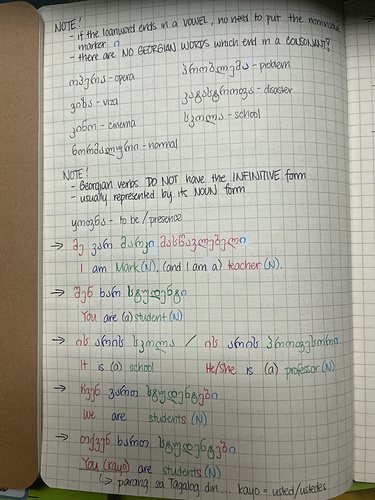 NOTE!
- if the loanword ends in a VOWEL, no need to put the nominative
marker ი
- there are NO GEORGIAN WORDS which end in a CONSONANT?
ოპერა - opera პრობლემა - problem
ვიზა - viza კატასტროფა - disaster
კინო - cinema სკოლა - school
ნორმალური - normal
NOTE!
- Georgian verbs DO NOT have the INFINITIVE form
- usually represented by its NOUN form
ყოფნა - to be / presence
→ მე ვარ მარკი მასწავლებელი
I am Mark (N), (and I am a) teacher (N).
→ შენ ხარ სტუდენტი
You are (a) student (N)
→ ის არის სკოლა / ის არის პროფესორი
It is (a) school He/She is (a) professor (N)
→ ჩვენ ვართ სტუდენტები
We are students (N)
→ თქვენ ხართ სტუდენტები
You (kayo) are students (N)
↳ parang sa Tagalog din... kayo = usted/ustedes